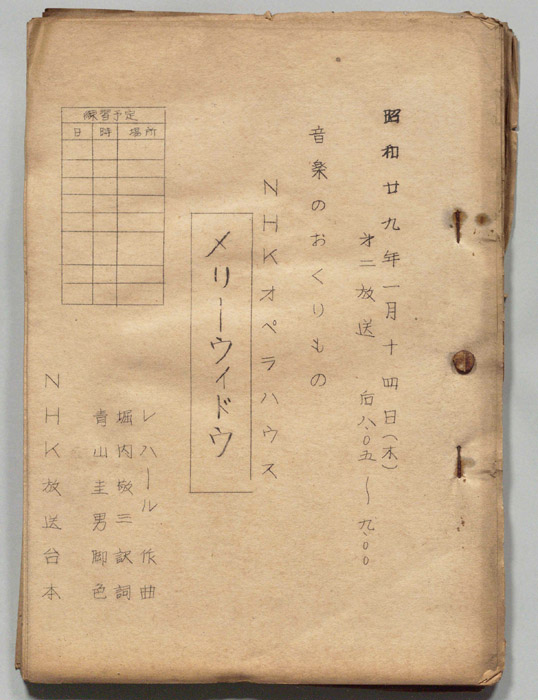 昭和廿九年一月十四日(木)
才二放送 后八.〇五〜九.〇〇
音楽のおくりもの
NHKオペラハウス
メリーウイドウ
練習予定
日 時 場所
レハール 作曲
堀内敬三 訳詞
青山圭男 脚色
NHK放送台本